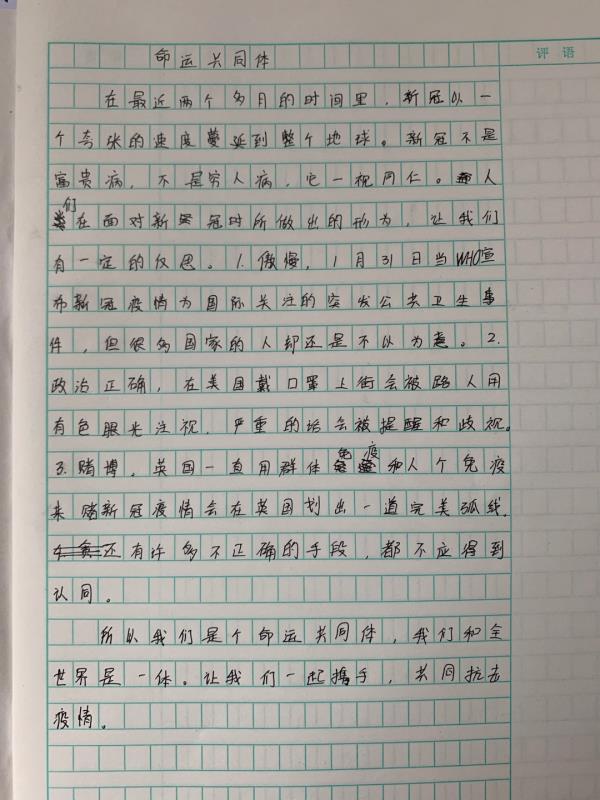 评语
命运共同体
在最近两个多月的时间里，新冠以一
个夸张的速度蔓延到整个地球。新冠不是
富贵病，不是穷人病，它一视同仁。人
们在面对新冠时所做出的形为，让我们
有一定的反思。1.傲慢，1月31日当WHO宣
布新冠疫情为国际关注的突发公共卫生事
件，但很多国家的人却还是不以为意。2.
政治正确，在美国戴口罩上街会被路人用
有色眼光注视，严重的话会被提醒和歧视。
3.赌博，英国一直用群体免疫和人个免疫
来赌新冠疫情会在英国划出一道完美弧线，
还有许多不正确的手段，都不应得到
认同。
所以我们是个命运共同体，我们和全
世界是一体。让我们一起携手，共同抗击
疫情。